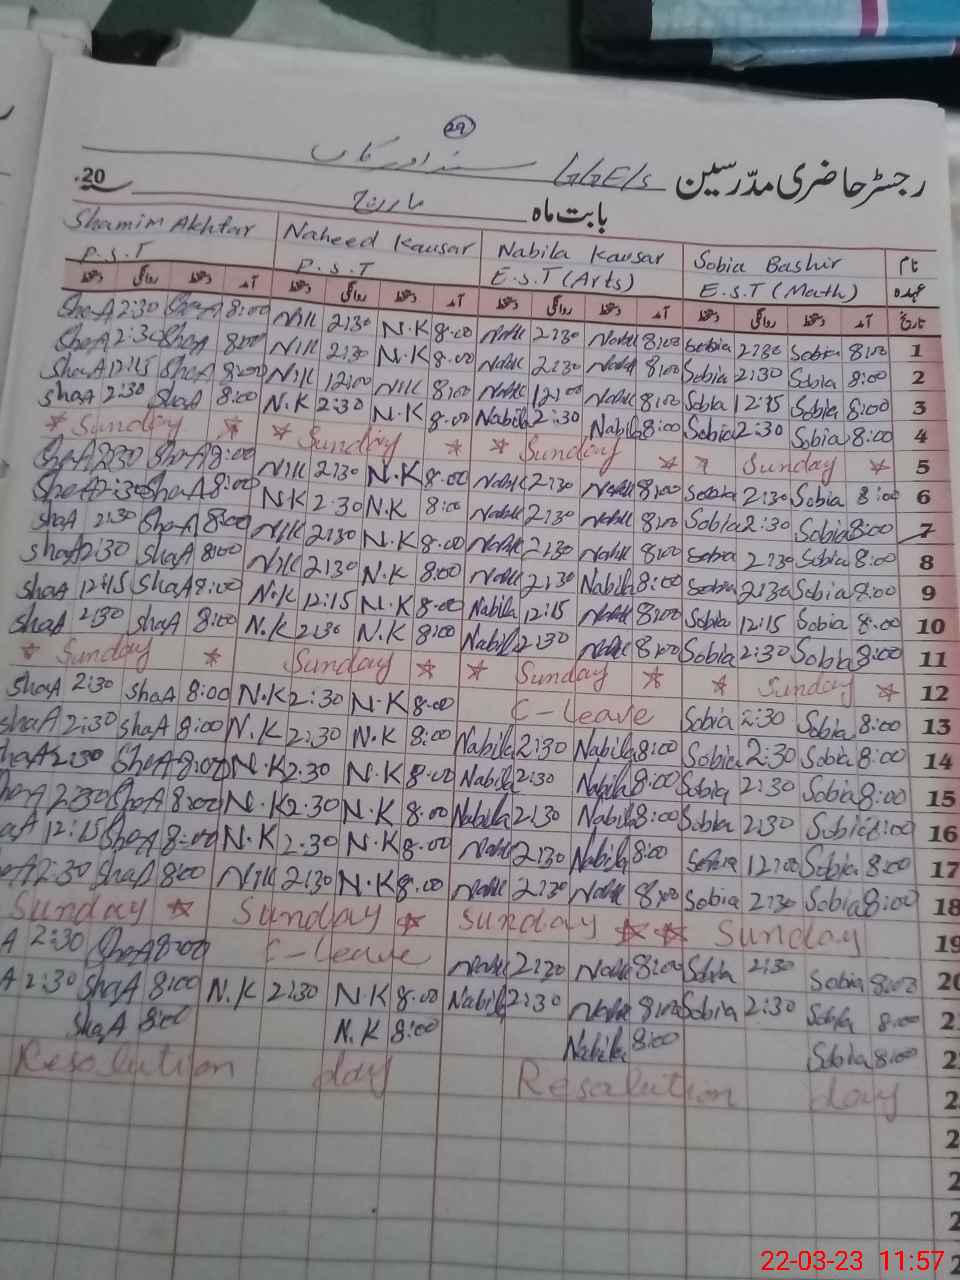 29
رجسٹر حاضری مدّرسین GGE/S
بابت ماہ مارچ 20
نام Sobia Bashir Nabila Kausar Naheed Kausar Shamim Akhtar
عہدہ E.S.T (Math) E.S.T (Arts) P.S.T P.S.T
تاریخ آمد دستخط روانگی دستخط آمد دستخط روانگی دستخط آمد دستخط روانگی دستخط آمد دستخط روانگی دستخط
ShaA 2:30 ShaA 8:00 NK 2:30 N.K 8:00 Nabil 2:30 Nabil 8:00 Sobia 2:30 Sobia 8:00 1
ShaA 2:30 ShaA 8:00 NK 2:30 N.K 8:00 Nabil 2:30 Nabil 8:00 Sobia 2:30 Sobia 8:00 2
ShaA 12:15 ShaA 8:00 NK 12:00 NK 8:00 Nabil 12:00 Nabil 8:00 Sobia 12:15 Sobia 8:00 3
ShaA 2:30 ShaA 8:00 N.K 2:30 N.K 8:00 Nabila 2:30 Nabila 8:00 Sobia 2:30 Sobia 8:00 4
Sunday Sunday Sunday Sunday 5
ShaA 2:30 ShaA 8:00 NK 2:30 N.K 8:00 Nabil 2:30 Nabil 8:00 Sobia 2:30 Sobia 8:00 6
ShaA 2:30 ShaA 8:00 N.K 2:30 N.K 8:00 Nabil 2:30 Nabil 8:00 Sobia 2:30 Sobia 8:00 7
ShaA 2:30 ShaA 8:00 NK 2:30 N.K 8:00 Nabil 2:30 Nabil 8:00 Sobia 2:30 Sobia 8:00 8
ShaA 2:30 ShaA 8:00 NK 2:30 N.K 8:00 Nabil 2:30 Nabila 8:00 Sobia 2:30 Sobia 8:00 9
ShaA 12:15 ShaA 8:00 N.K 12:15 N.K 8:00 Nabila 12:15 Nabil 8:00 Sobia 12:15 Sobia 8:00 10
ShaA 2:30 ShaA 8:00 N.K 2:30 N.K 8:00 Nabila 2:30 Nabil 8:00 Sobia 2:30 Sobia 8:00 11
Sunday Sunday Sunday Sunday 12
ShaA 2:30 ShaA 8:00 N.K 2:30 N.K 8:00 C-leave Sobia 2:30 Sobia 8:00 13
ShaA 2:30 ShaA 8:00 N.K 2:30 N.K 8:00 Nabila 2:30 Nabila 8:00 Sobia 2:30 Sobia 8:00 14
haA 2:30 ShaA 8:00 N.K 2.30 N.K 8:00 Nabila 2:30 Nabila 8:00 Sobia 2:30 Sobia 8:00 15
haA 2:30 ShaA 8:00 N.K 2.30 N.K 8:00 Nabila 2:30 Nabila 8:00 Sobia 2:30 Sobia 8:00 16
aA 12:15 ShaA 8:00 N.K 2.30 N.K 8:00 Nabil 2:30 Nabila 8:00 Sobia 12:00 Sobia 8:00 17
aA 2:30 ShaA 8:00 NK 2:30 N.K 8:00 Nabil 2:30 Nabil 8:00 Sobia 2:30 Sobia 8:00 18
Sunday Sunday Sunday Sunday 19
A 2:30 ShaA 8:00 C-leave Nabil 2:30 Nabil 8:00 Sobia 2:30 Sobia 8:00 20
A 2:30 ShaA 8:00 N.K 2:30 N.K 8:00 Nabila 2:30 Nabil 8:00 Sobia 2:30 Sobia 8:00 2
ShaA 8:00 N.K 8:00 Nabila 8:00 Sobia 8:00 2
Resolution day Resolution day 2
2
2
2
2
22-03-23 11:57